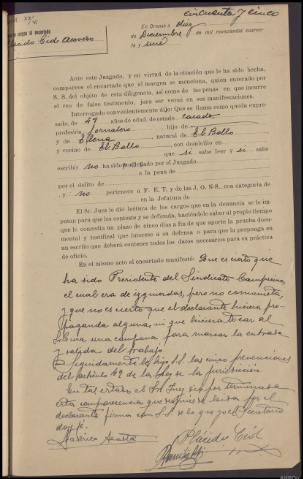 cincuenta y cinco
En Orense a diez
de Diciembre de mil novecientos cuaren-
ta y seis
Ante este Juzgado, y en virtud de la citación que le ha sido hecha,
comparece el encartado que al margen se menciona, quien enterado por
S. S. del objeto de esta diligencia, así como de las penas en que incurre
el reo de falso testimonio, jura ser veraz en sus manifestaciones.
Interrogado convenientemente dijo: Que se llama como queda expre-
sado, de 47 años de edad, de estado casado
profesión Jornalero hijo de
y de Elena natural de El Bollo
y vecino de El Bollo, con domicilio en
que si sabe leer y si sabe
escribir no ha sido procesado por el Juzgado.
a la pena de
por el delito de
y no pertenece a F. E. T. y de las J. O. N-S. con categoría de
en la Jefatura de
El Sr. Juez le dió lectura de los cargos que en la denuncia se le im-
putan para que los conteste y se defienda, haciéndole saber al propio tiempo
que le concedía un plazo de cinco días a fin de que aporte la prueba docu-
mental y testifical que interese a su defensa o para que la proponga en
un escrito que deberá contener todos los datos necesarios para su práctica
de oficio.
En el mismo acto el encartado manifiesta: Que es cierto que
ha sido Presidente del Sindicato Campesino
el cual era de izquierdas, pero no comunista,
y que no es cierto que el declarante hiciera pro-
paganda alguna, ni que hiciera tocar al
una campana para marcar la entrada
y salida del trabajo.
Seguidamente las cinco prevenciones
del artículo 49 de la Ley de la jurisdicción.
En tal estado el Sr. Juez dió por terminada
esta comparecencia que leída por el
declarante firma con S.S. de lo que yo el Secretario
doy fe.
Plácido Cid